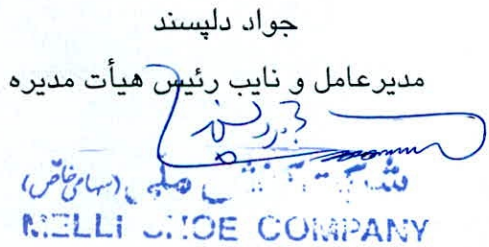 جواد دلپسند
مدیرعامل و نایب رئیس هیأت مدیره
شرکت کفش ملی (سهامی خاص)
MELLI SHOE COMPANY